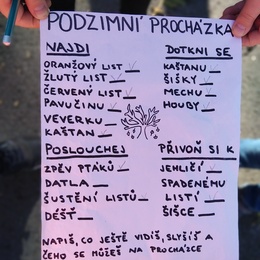 PODZIMNÍ PROCHÁZKA
NAJDI
ORANŽOVÝ LIST
ŽLUTÝ LIST
ČERVENÝ LIST
PAVUČINU
VEVERKU
KAŠTAN
DOTKNI SE
KAŠTANU
ŠIŠKY
MECHU
HOUBY
POSLOUCHEJ
ZPĚV PTÁKŮ
DATLA
ŠUSTĚNÍ LISTŮ
DÉŠŤ
PŘIVOŇ SI K
JEHLIČÍ
SPADENÉMU
LISTÍ
ŠIŠCE
NAPIŠ, CO JEŠTĚ VIDÍŠ, SLYŠÍŠ A
ČEHO SE MŮŽEŠ NA PROCHÁZCE